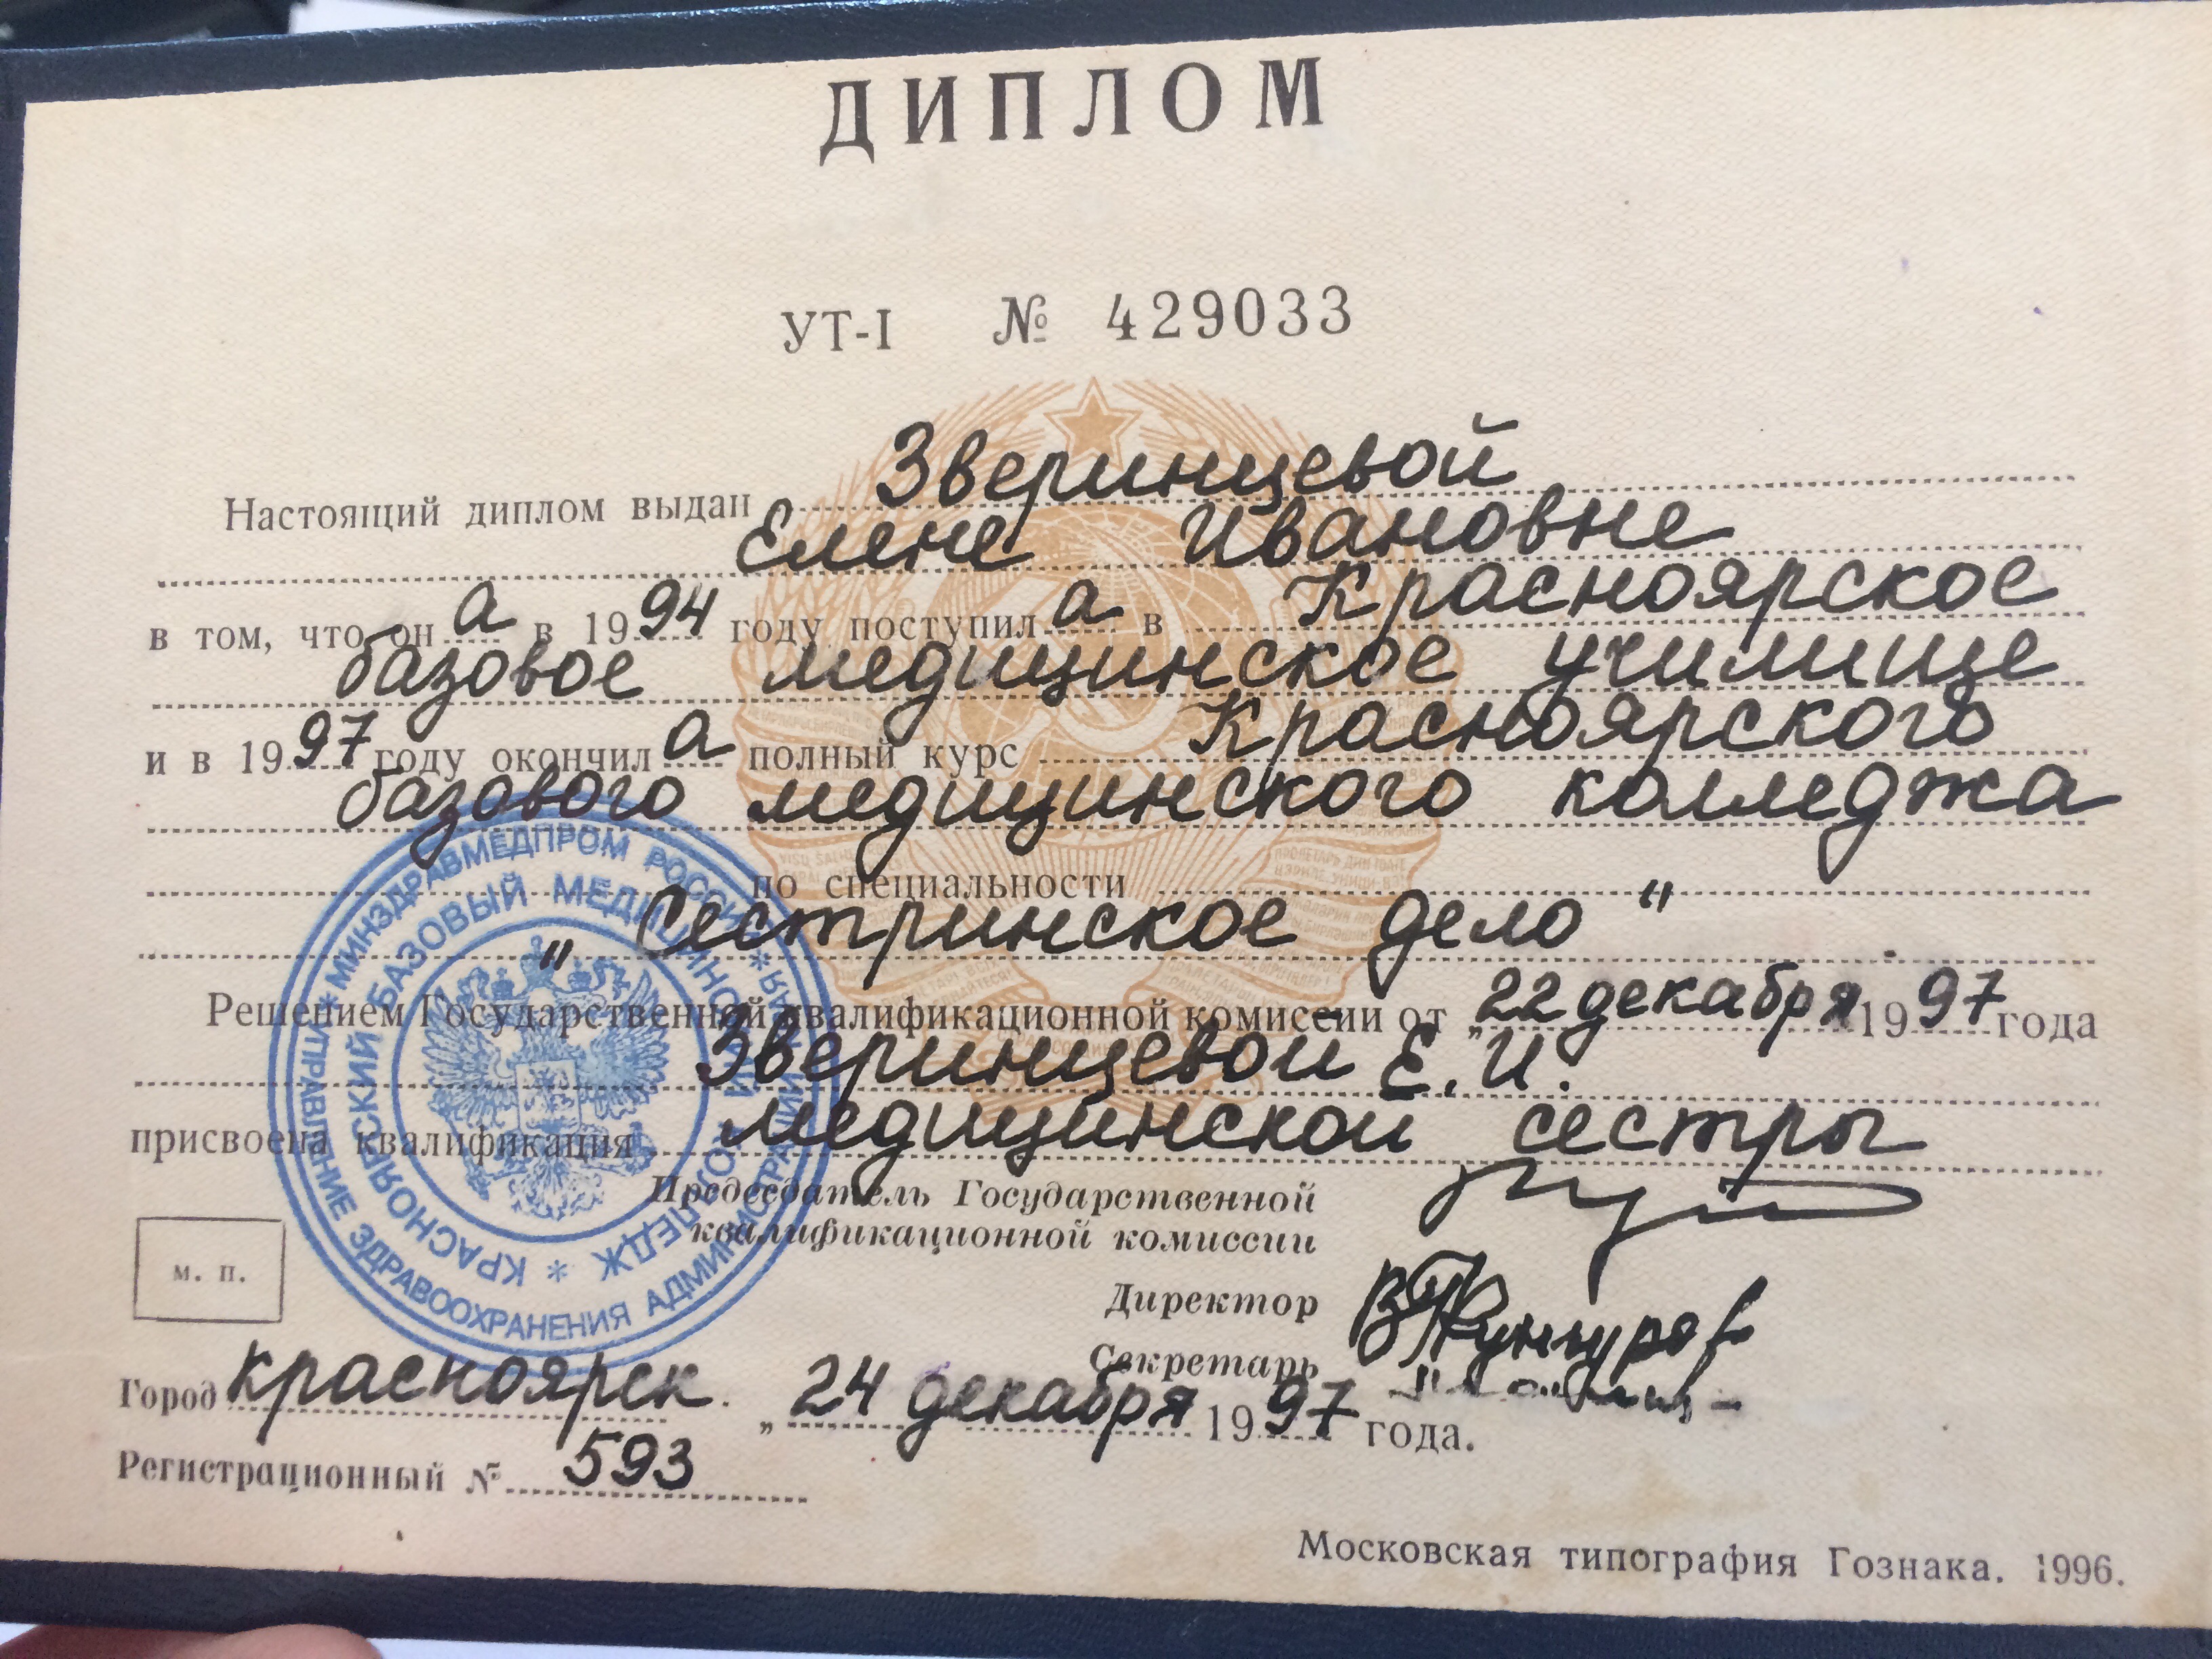 ДИПЛОМ
УТ-I № 429033
Настоящий диплом выдан Зверинцевой
Елене Ивановне
в том, что он а в 1994 году поступил а в Красноярское
базовое медицинское училище
и в 1997 году окончил а полный курс Красноярского
базового медицинского колледжа
по специальности
"Сестринское дело"
Решением Государственной квалификационной комиссии от „22 декабря 1997 года
Зверинцевой Е.И.
присвоена квалификация медицинской сестры
Председатель Государственной
квалификационной комиссии
м. п.
Директор
Секретарь
Город Красноярск. „24 декабря 1997 года.
Регистрационный № 593
Московская типография Гознака. 1996.
* МИНЗДРАВМЕДПРОМ РОССИИ *
УПРАВЛЕНИЕ ЗДРАВООХРАНЕНИЯ АДМИНИСТРАЦИИ КРАЯ
КРАСНОЯРСКИЙ БАЗОВЫЙ МЕДИЦИНСКИЙ КОЛЛЕДЖ *